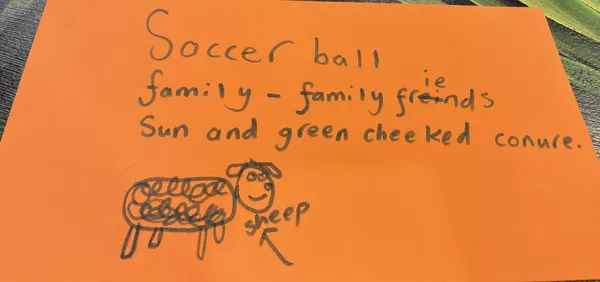 Soccer ball
family - family friends
Sun and green cheeked conure.
sheep